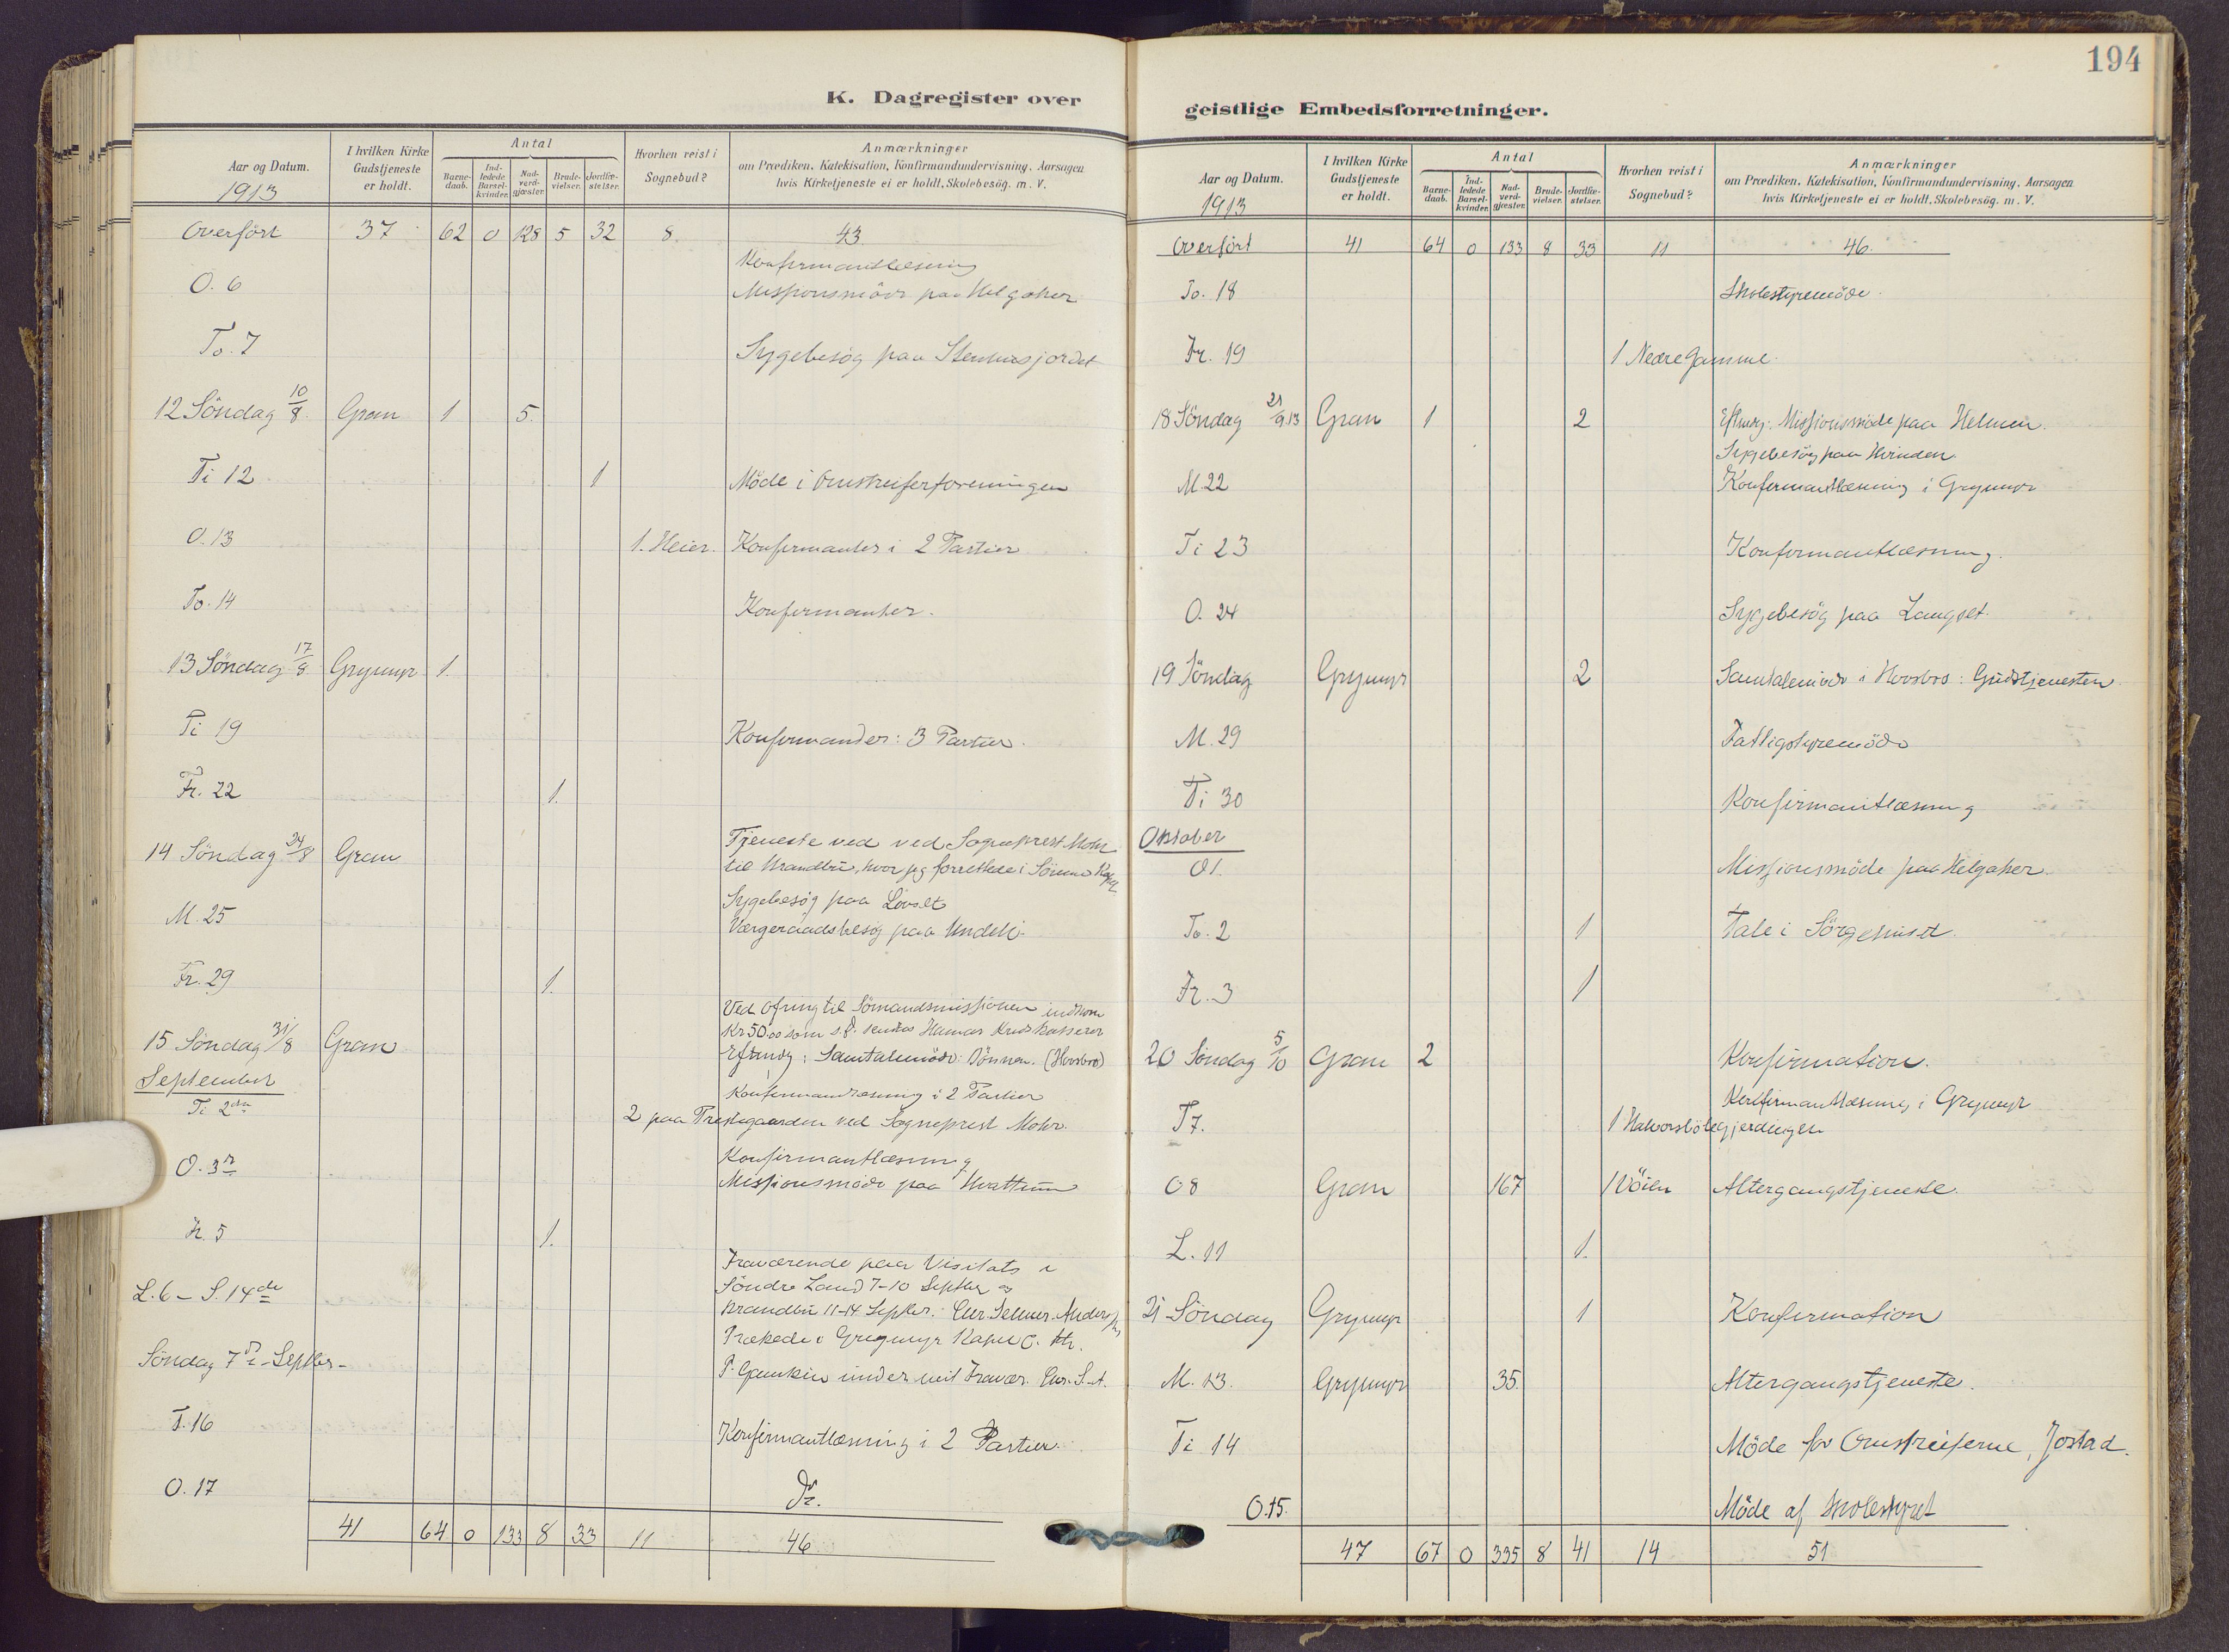 K. Dagregister over
Aar og Datum. 1913
I hvilken Kirke Gudstjeneste er holdt.
Antal
Barne-daab.
Ind-ledede Barsel-kvinder.
Nad-verd-gjæster.
Brude-vielser.
Jordfæ-stelser.
Hvorhen reist i Sognebud?
Anmærkninger
om Prædiken, Katekisation, Konfirmandundervisning, Aarsagen
hvis Kirketjeneste ei er holdt, Skolebesög. m. V.
Overfört 37 62 0 128 5 32 8 43
Konfirmantlæsning
O. 6 Missionsmöde paa Helgaker
To. 7 Sygebesög paa Stenhusjordet
12 Söndag 10/8 Gran 1 5.
Ti 12 1 Möde i Omstreiferforeningen
O. 13 1. Heier. Konfirmanter i 2 Partier
To. 14 Konfirmanter.
13 Söndag 17/8 Grymyr 1.
Ti 19 Konfirmander: 3 Partier.
Fr. 22 1.
14 Söndag 24/8 Gran Tjeneste ved ved Sogneprest Mohr
til Brandbu, hvor jeg forrettede i Sörum Kapel
Sygebesög paa Lövset
M. 25 Værgeraadsbesög paa
Fr. 29 1.
Ved Ofring til Sömandsmissionen indkom
Kr 50.00 som s. D. sendtes Hamar Kredskasserer
15 Söndag 31/8 Gran Eftmdg: Samtalemöde: Bönnen. (Hovsbro)
September
Konfirmandlæsning i 2 Partier
Ti 2den 2 paa Prestegaarden ved Sogneprest Mohr.
Konfirmantlæsning
O. 3die Missionsmöde paa Hvattum
Fr. 5 1.
Fraværende paa Visitats i
L. 6 - S. 14de Söndre Land 7-10 Septbr og
Brandbu 11-14 Septbr.
Prækede i Grymyr Kapel
Söndag 7de Septbr. under mit Fravær.
T. 16 Konfirmantlæsning i 2 Partier.
O. 17 Do.
41 64 0 133 8 33 11 46
194
geistlige Embedsforretninger.
Aar og Datum. 1913
I hvilken Kirke Gudstjeneste er holdt.
Antal
Barne-daab.
Ind-ledede Barsel-kvinder.
Nad-verd-gjæster.
Brude-vielser.
Jordfæ-stelser.
Hvorhen reist i Sognebud?
Anmærkninger
om Prædiken, Katekisation, Konfirmandundervisning, Aarsagen
hvis Kirketjeneste ei er holdt, Skolebesög. m. V.
Overfört 41 64 0 133 8 33 11 46.
To. 18 Skolestyremöde.
Fr. 19 1 Nedre Gamme
18 Söndag 21/9.13 Gran 1 2 Eftmdg: Missionsmöde paa Helmen.
Sygebesög paa Hvinden.
M. 22 Konfirmantlæsning i Grymyr
Ti 23 Konfirmantlæsning.
O. 24 Sygebesög paa Langset.
19 Söndag Grymyr 2 Samtalemöde i Hovsbro: Gudstjenesten
M. 29 Fattigstyremöde
Ti 30 Konfirmantlæsning
Oktober
O 1. Missionsmöde paa Helgaker.
To. 2 1 Tale i Sörgehuset.
Fr. 3 1
20 Söndag 5/10 Gran 2 Konfirmation.
Konfirmantlæsning i Grymyr
T 7. 1 Halvorsbölegjerdingen
O 8 Gran 167 1 Vöien Altergangstjeneste.
L. 11 1.
21 Söndag Grymyr 1 Konfirmation
M. 13. Grymyr 35. Altergangstjeneste.
Ti 14 Möde for Omstreiferne, Jostad.
O. 15. Möde af Skolestyret
47 67 0 335 8 41 14 51